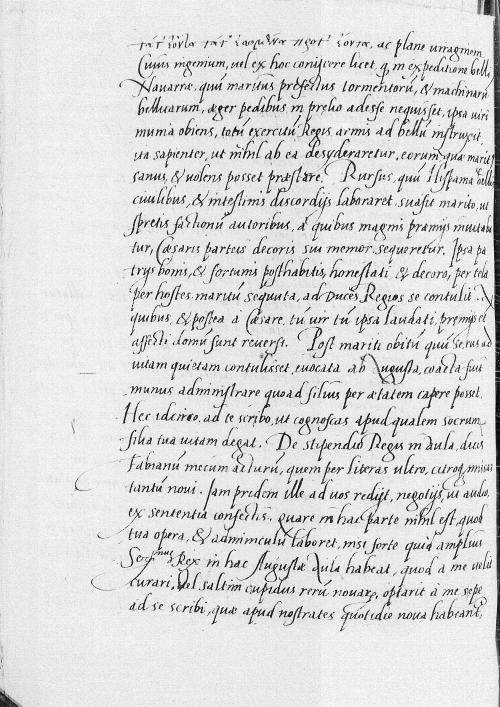 τά τ' ἐόντα τά τ' ἐσόμενα πρό τ' ἐόντα, ac plane viraginem
Cuius ingenium, uel ex hoc conijcere licet, q, in expeditione belli
Nauarræ, quū maritus præfectus tormentorū, & machinarū
bellicarum, æger pedibus in prelio adesse nequisset, ipsa uiri
munia obiens, totū exercitū Regis armis ad bellū instruxit
ita sapienter, ut nihil ab ea desyderaretur, eorum quæ maritus
sanus, & uolens posset præstare. Rursus, quū Hispania bellis
ciuilibus, & intestinis discordijs laboraret, suasit marito, ut
spretis factionū autoribus, à quibus magnis præmijs inuitaba
tur, Cæsaris parteis decoris sui memor sequeretur. Ipsa pa
trijs bonis, & fortunis posthabitis, honestati & decoro, per tela
per hostes maritū sequuta, ad Duces Regios se contulit. A
quibus, & postea à Cæsare, tū uir tū ipsa laudati, premijs et
affecti domū sunt reuersi. Post mariti obitū quū se rus ad
uitam quietam contulisset, euocata ab Augusta, coacta fuit
munus administrare quoad filius per ætatem capere posset.
Hec idcirco, ad te scribo, ut cognoscas apud qualem socrum
filia tua uitam degat. De stipendio Regis in aula, dicis
Fabianū mecum acturū, quem per literas ultro, citroq, missas
tantū noui. Iam pridem ille ad uos redijt, negotijs, ut audio,
ex sententia confectis. quare in hac parte nihil est, quod
tua opera, & adminiculū laboret, nisi forte quid amplius
Ser^mus Rex in hac Augustæ aula habeat, quod à me uelit
curari, uel saltim cupidus rerū nouarū, optarit à me sepe
ad se scribi, quæ apud nostrates quotidie noua habeant,